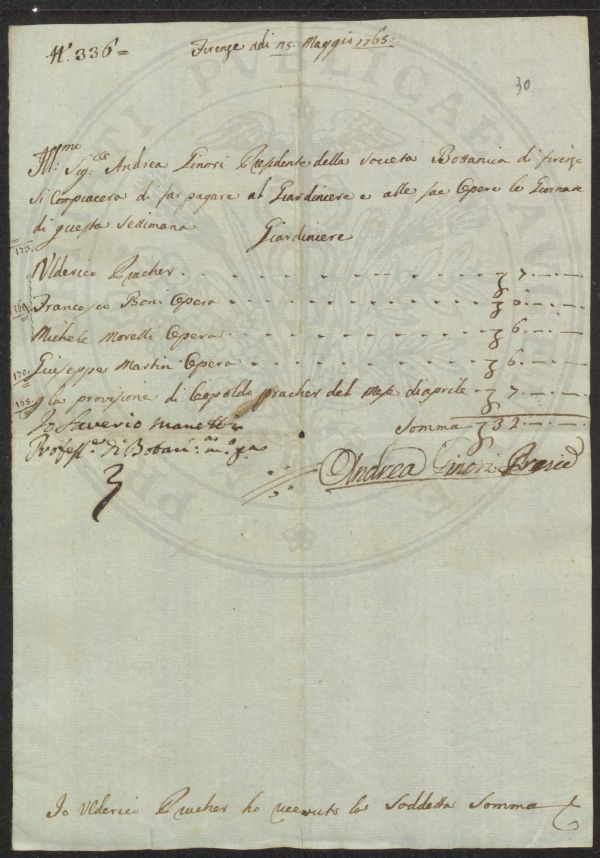 N.º 336=
Firenze adi 15. Maggio 1765:
30
Ill.mo Sig.re Andrea Ginori Presidente della Societa Bottanica di firēze
Si Compiacera di far pagare al Giardiniere e alle sue Opere le Giornate
di questa Settimana
Giardiniere
Ulderico Prucher 7
169 Francesco Boni Opera 6
Michele Morelli Opera 6
170 Giuseppe Martin Opera 6
165 p la provisione di Leopoldo prucher del Mese di aprile 7
Io Saverio Manetti
Somma 32
Profess.e di Botan.
Andrea Ginori Presid
Io Ulderico Prucher ho riceuto la Soddetta Somma